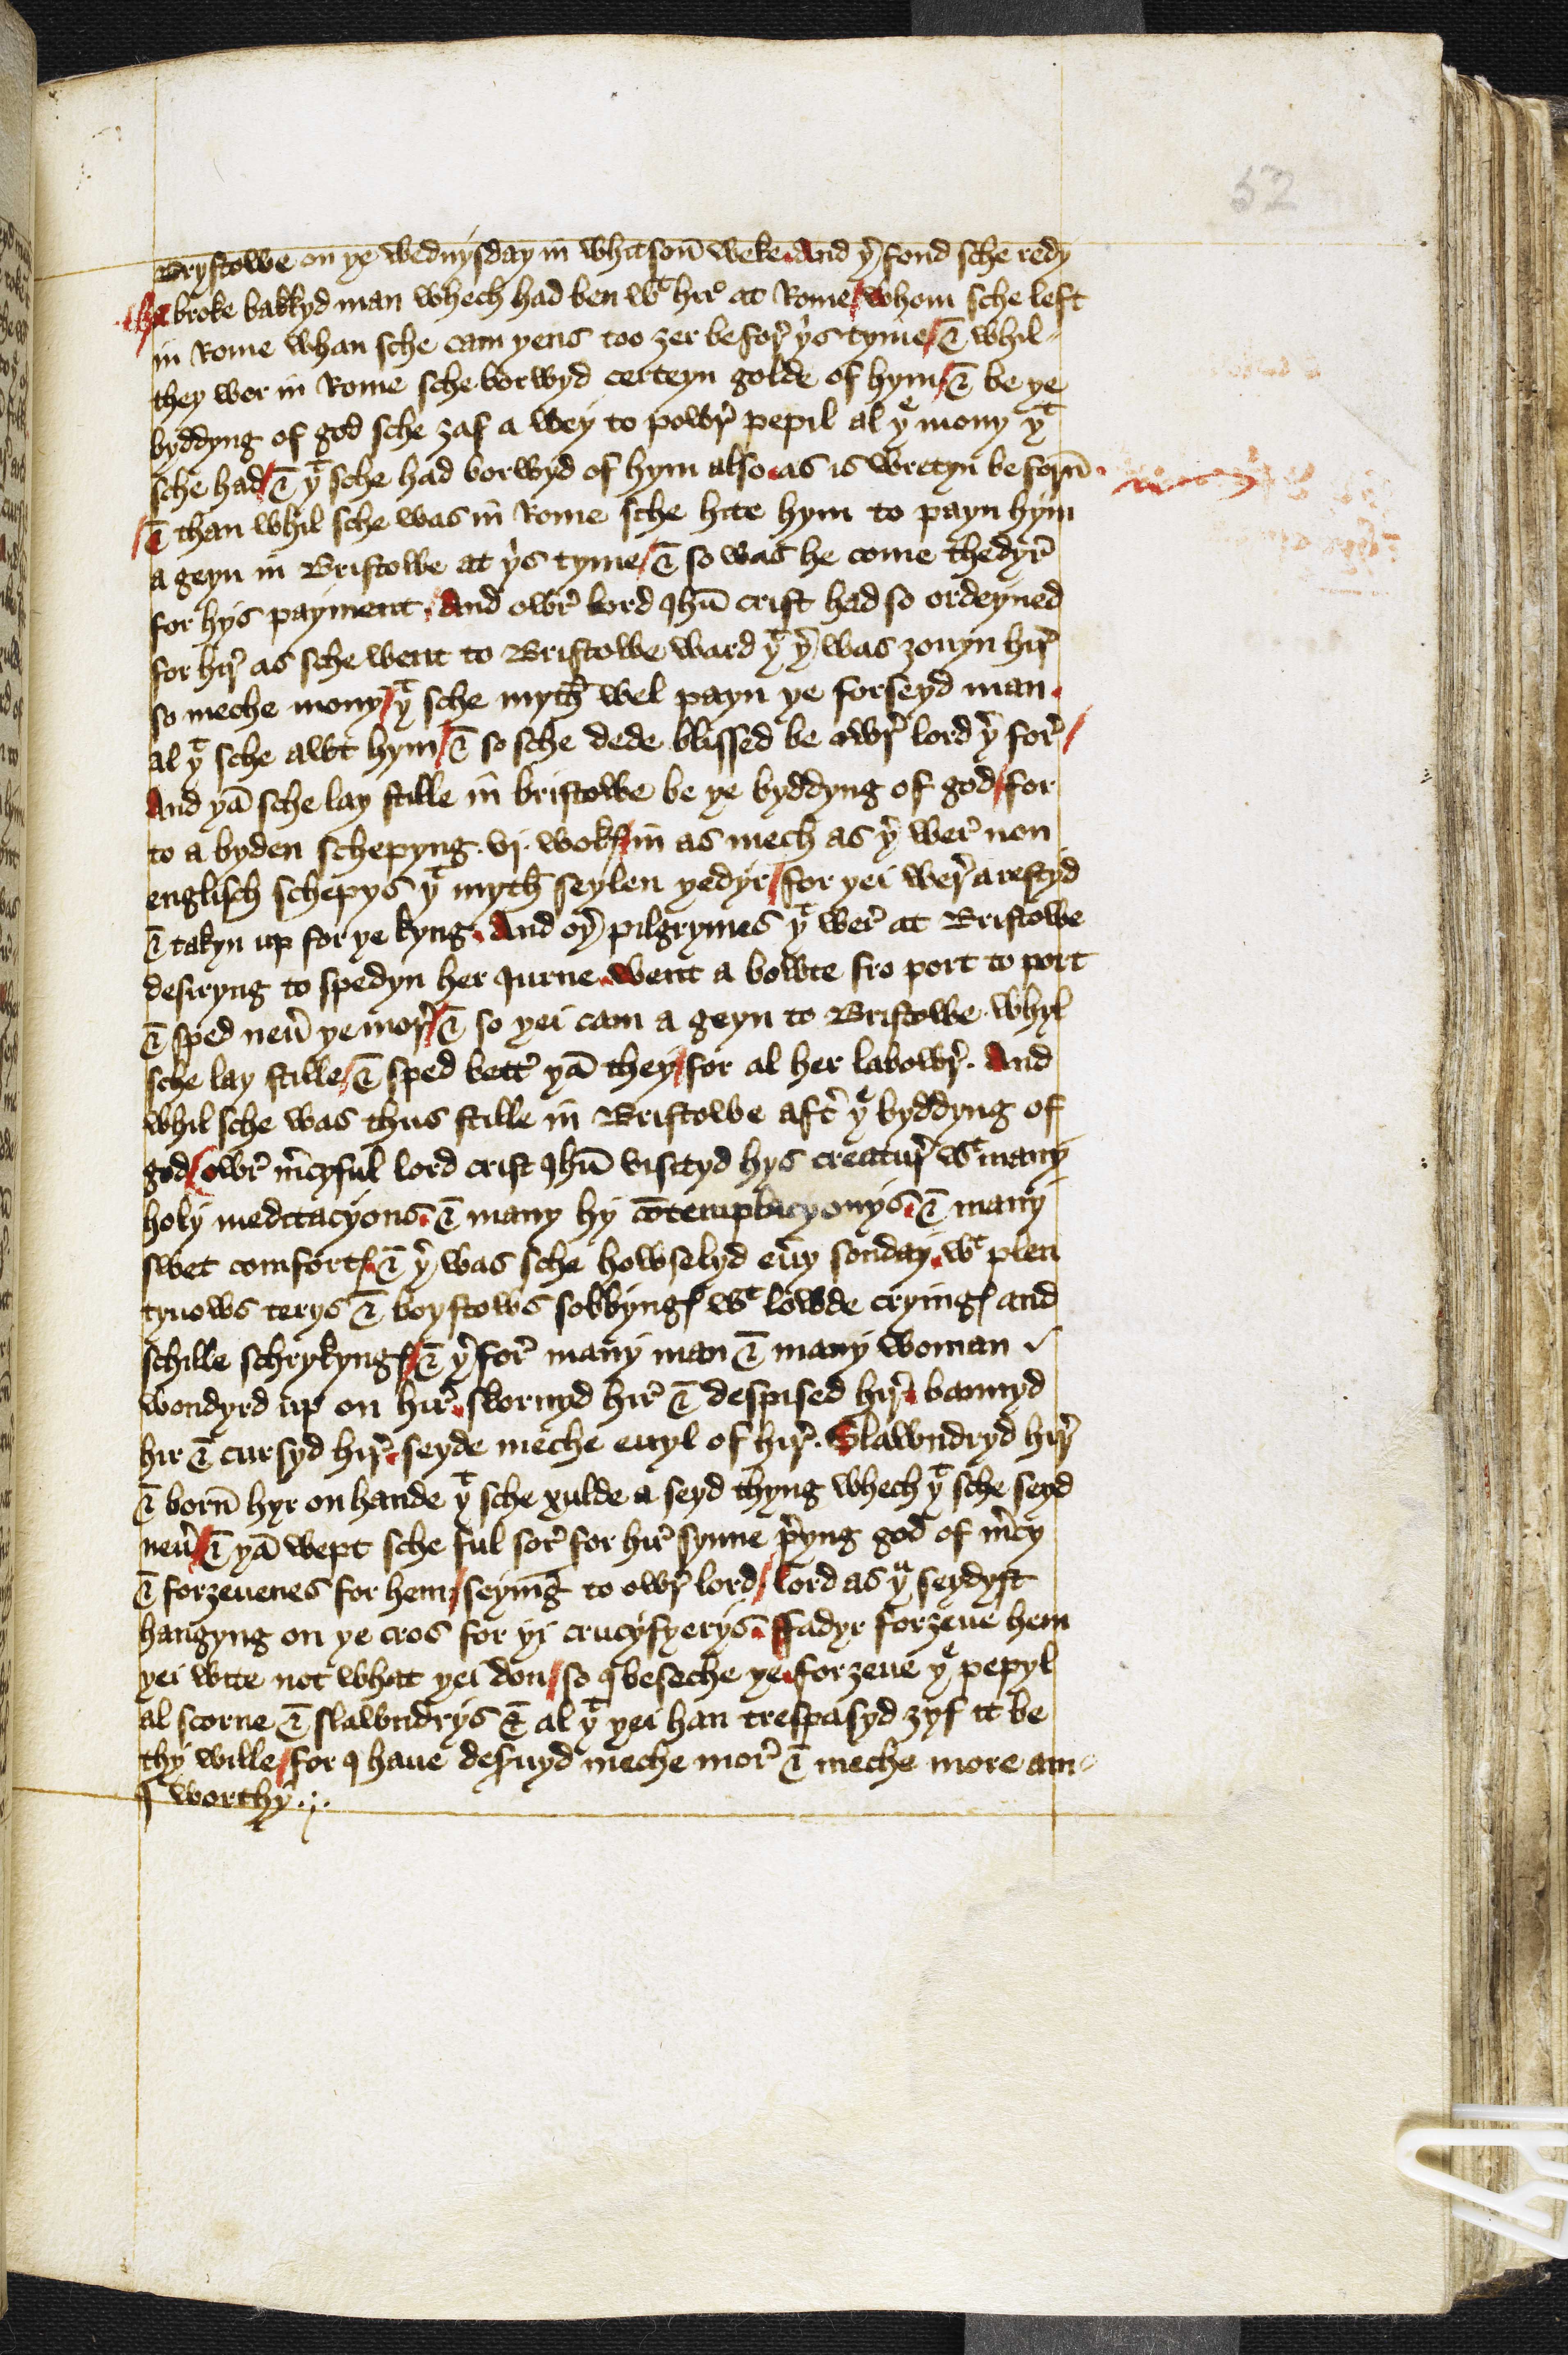 52
Brystowe on ye wednysday in whitson̄ weke. And yͬ fond sche redy
ye broke bakkyd man whech had ben wͭ hir̛ at Rome / whom sche left
in Rome whan sche cam yens too ȝer befor̛ ys tyme / & whil
they wer in Rome sche borwyd certeyn golde of hym / & be ye
byddyng of god sche ȝaf a wey to powr̛ pepil al yͤ mony yͭ
sche had / & yͭ sche had borwyd of hym also. as is wretyn beforn̄.
/ & than whil sche was in Rome sche hite hym to payn hym
a geyn in Bristowe at ys tyme / & so was he come thedyr̛
for hys payment. And owr̛ lord Ihū crist had so ordeyned
for hir̛ as sche went to Bristowe ward yͭ yͬ was ȝouyn hir̛
so meche mony / yͭ sche myth̄ wel payn ye forseyd man.
al yͭ sche awt hym / & so sche dede blissed be owr̛ lord yͬ for̛ /
And yā sche lay stille in bristowe be ye byddyng of god / for
to a byden schepyng. vj. wokꝭ / in as mech as yͬ wer̛ non
englisch schepys yͭ myth̄ seylen yedyr / for yei wer̛ arestyd
& takyn up for ye kyng. And oyͬ pilgrymes yͭ wer̛ at Bristowe
desiryng to spedyn her Jurne. went a bowte fro port to port
& sped neư ye mor̛ / & so yei cam a geyn to Bristowe. whyl
sche lay stille / & sped bett̛ yā they / for al her labowr̛. And
whil sche was thus stille in Bristowe aft̛ yͤ byddyng of
god / owr̛ m̛cyful lord crist Ihū visityd hys creatur̛ wͭ many
holy meditacyons. & many hy cōtemplacyonys. & many
swet comfortꝭ. & yͬ was sche howselyd eưy sonday. wͭ plen
tyuows terys & boystows sobbyngꝭ wͭ lowde cryingꝭ and
schille schrykyngꝭ / & yͬ for̛ many man & many woman
wondyrd up on hir̛. skornyd hir̛ & despised hir̛. bannyd
hir & cursyd hir̛. seyde meche euyl of hir̛. Slawndryd hir̛
& born̄ hyr on hande yͭ sche xulde a seyd thyng whech yͭ sche seyd
neư / & yā wept sche ful sor̛ for hir̛ synne p̛yng god of m̛cy
& forȝeuenes for hem / seying to owr̛ lord / lord as yͧ seydyst
hangyng on ye cros for yi crucyfyerys. ffadyr forȝeue hem
yei wite not what yei don / so I beseche ye. forȝeue yͤ pepyl
al scorne & slawndrys & al yͭ yei han trespasyd ȝyf it be
thy wille / for I haue des̛uyd meche mor̛ & meche more am
I worthy.